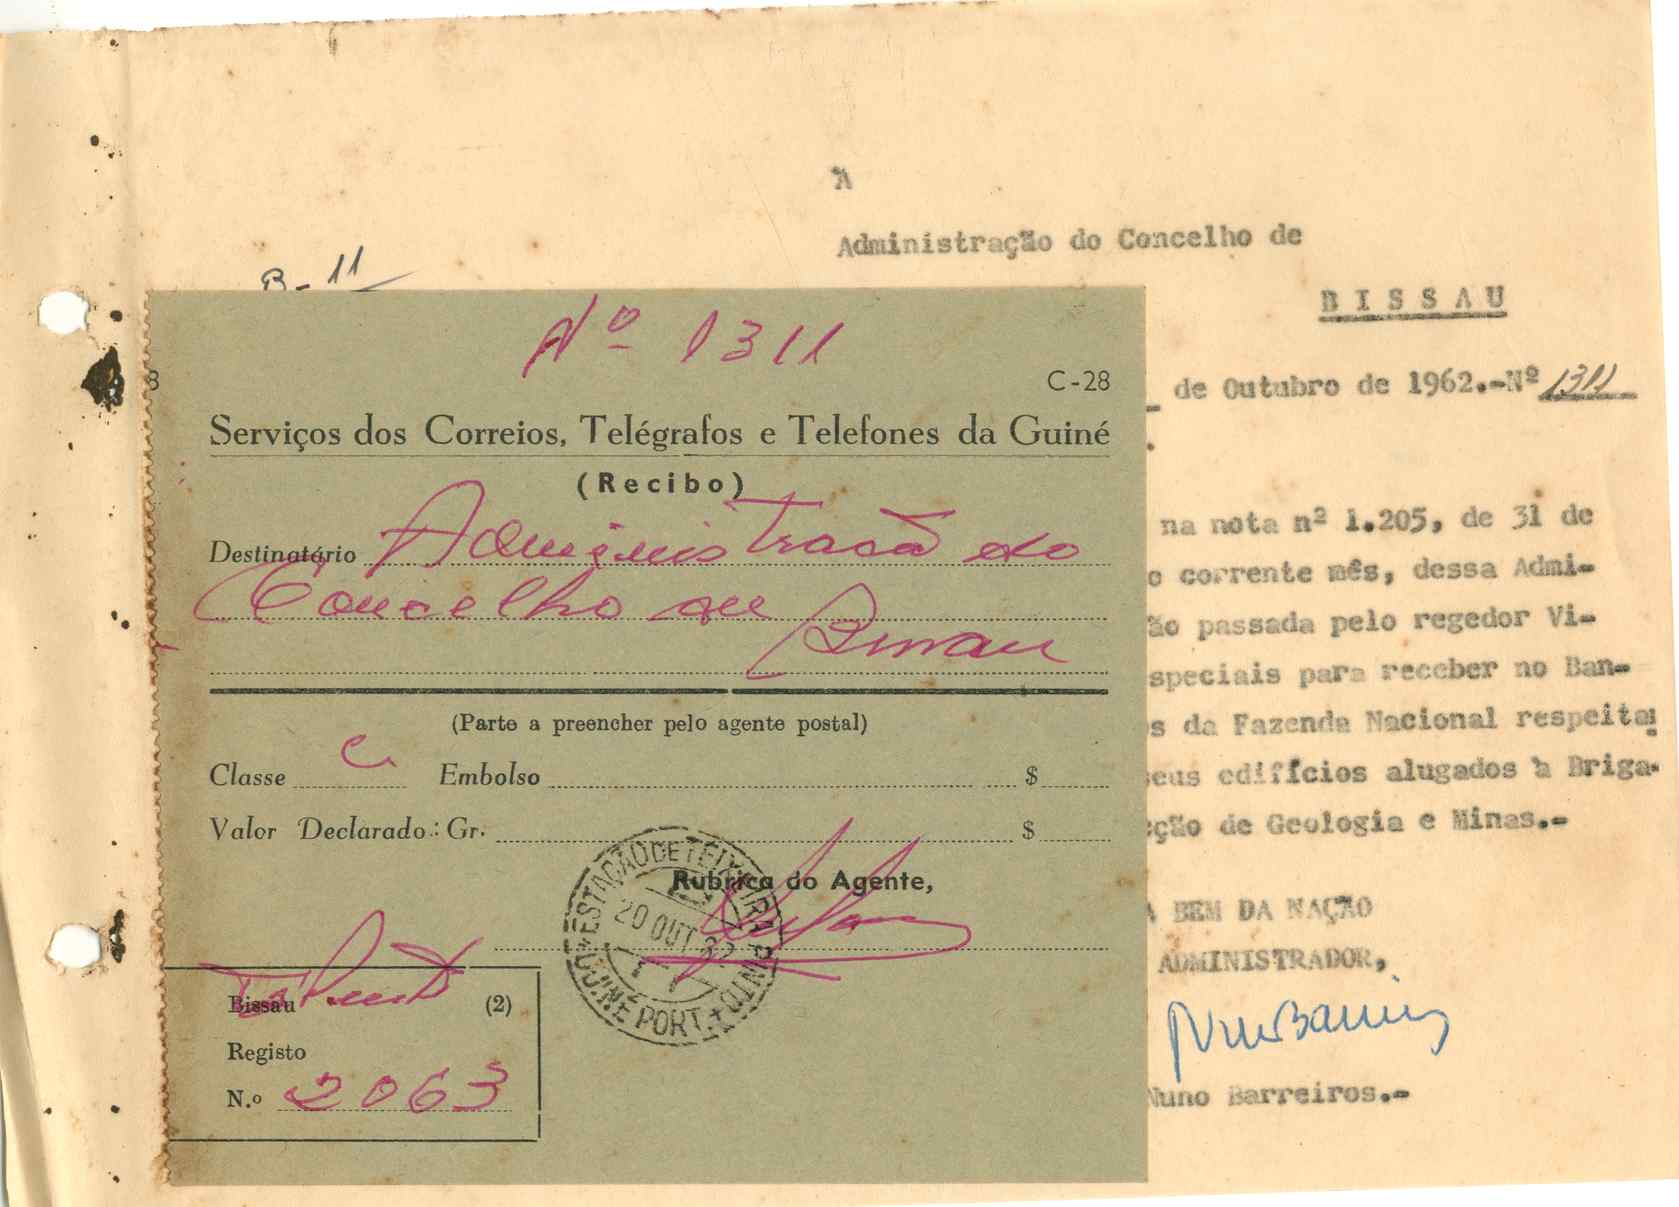 À
Administração do Concelho de
BISSAU
B-11
de Outubro de 1962.-Nº 1311
na nota nº 1.205, de 31 de
o corrente mês, dessa Admi-
ão passada pelo regedor Vi-
speciais para receber no Ban-
s da Fazenda Nacional respeita
seus edifícios alugados à Briga-
cção de Geologia e Minas.-
A BEM DA NAÇÃO
ADMINISTRADOR,
Nuno Barreiros
Nuno Barreiros.-
Nº 1311
8
C-28
Serviços dos Correios, Telégrafos e Telefones da Guiné
(Recibo)
Destinatário Administração do
Concelho de
Bissau
(Parte a preencher pelo agente postal)
Classe C Embolso $
Valor Declarado: Gr. $
Rubrica do Agente,
ESTAÇÃO DE TEIXEIRA PINTO
20 OUT 62
GUINÉ PORT.
Bissau (2)
Registo
N.º 2063